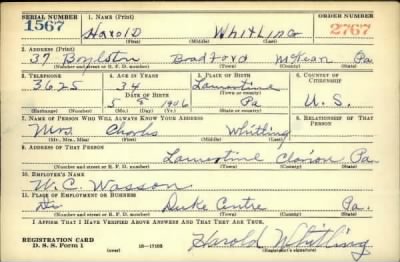 SERIAL NUMBER 1. NAME (Print) ORDER NUMBER
1567 Harold Whitling 2767
(First) (Middle) (Last)
2. ADDRESS (Print)
37 Boylston Bradford McKean Pa
(Number and street or R. F. D. number) (Town) (County) (State)
3. TELEPHONE 4. AGE IN YEARS 5. PLACE OF BIRTH 6. COUNTRY OF CITIZENSHIP
3625 34 Lamartine
DATE OF BIRTH (Town or county)
5 5 1906 Pa U. S.
(Exchange) (Number) (Mo.) (Day) (Yr.) (State or country)
7. NAME OF PERSON WHO WILL ALWAYS KNOW YOUR ADDRESS 8. RELATIONSHIP OF THAT PERSON
Mrs. Whitling
(Mr., Mrs., Miss) (First) (Middle) (Last)
9. ADDRESS OF THAT PERSON
Lamartine Clarion Pa
(Number and street or R. F. D. number) (Town) (County) (State)
10. EMPLOYER'S NAME
W. C. Wasson
11. PLACE OF EMPLOYMENT OR BUSINESS
Duke Centre Pa.
(Number and street or R. F. D. number) (Town) (County) (State)
I AFFIRM THAT I HAVE VERIFIED ABOVE ANSWERS AND THAT THEY ARE TRUE.
REGISTRATION CARD
D. S. S. Form 1 (over) Harold Whitling
(Registrant's signature)